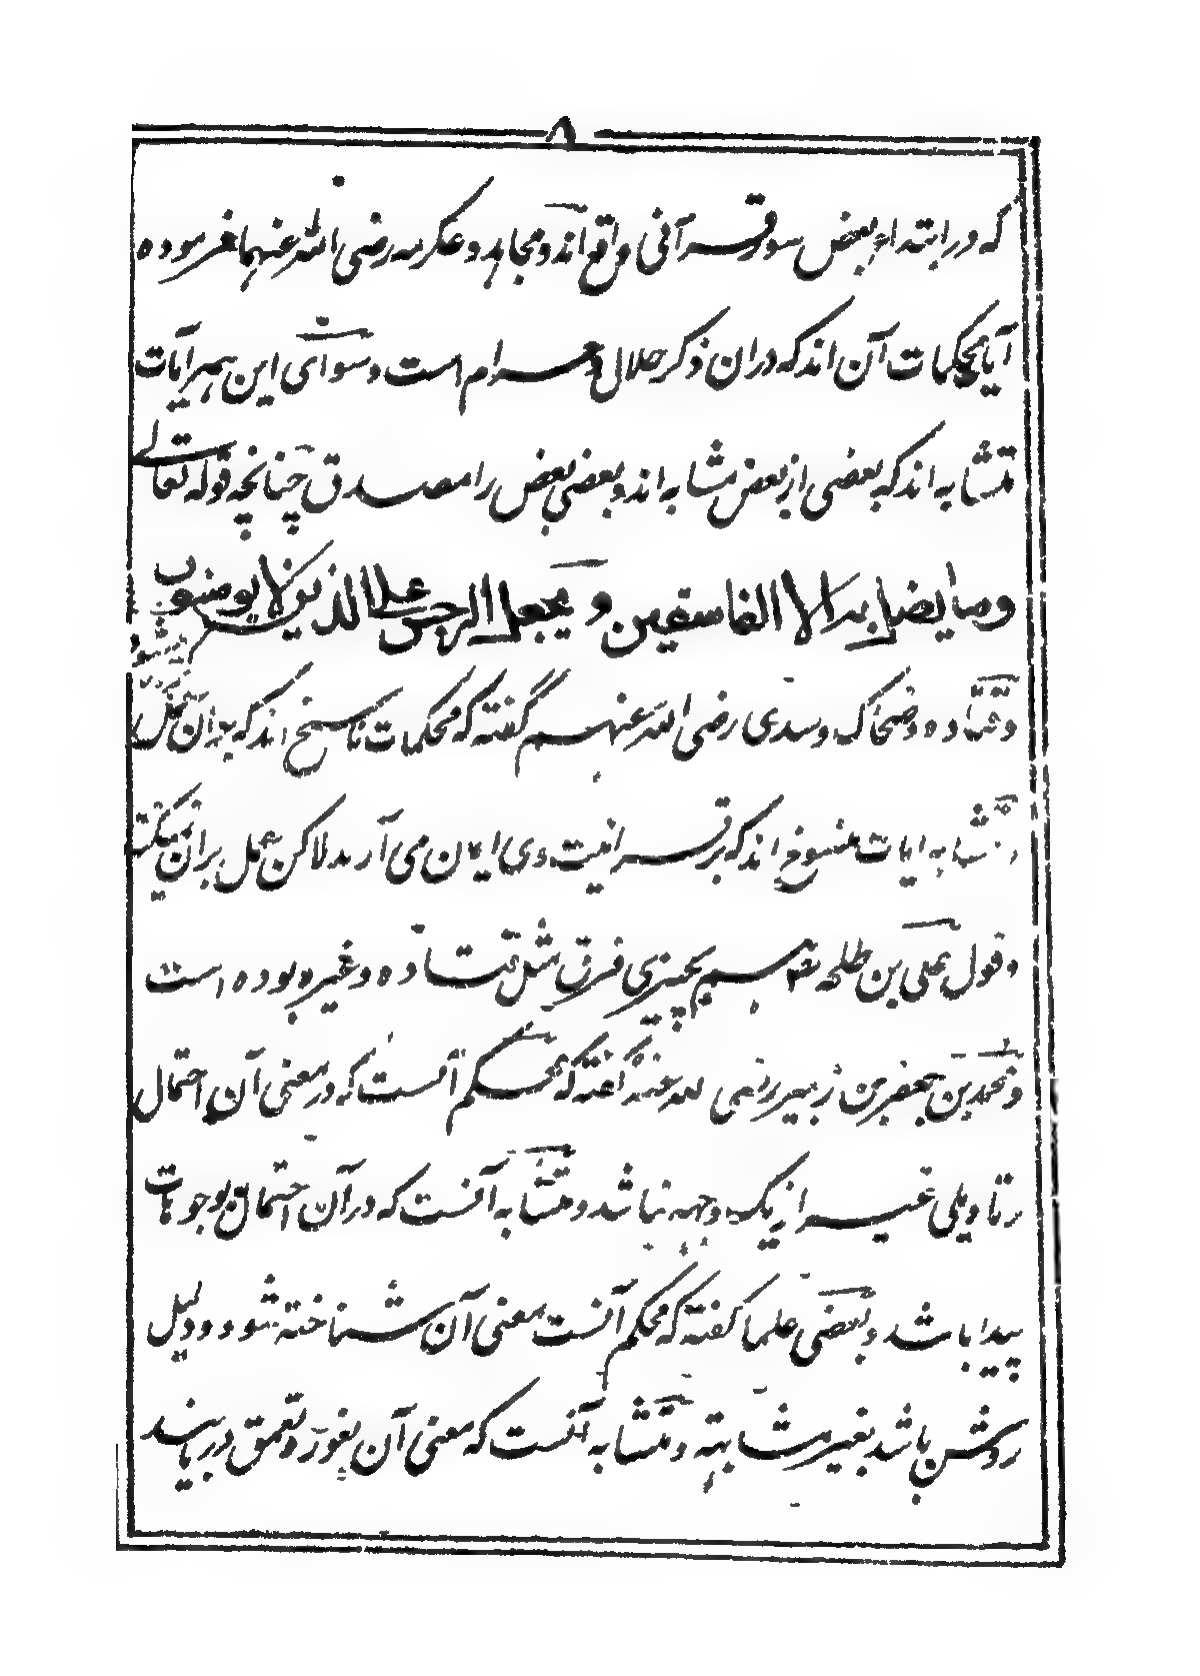 ۸
که در ابتداء بعض سور قرآنی واقع اند و مجاهد و عکرمه رضی الله عنهما فرموده
آیا محکمات آن اند که دران ذکر حلال و حرام است و سوای این همه آیات
متشابه اند که بعضی از بعض مشابه اند و بعضی بعض را مصدق چنانچه قوله تعالی
وما یضل به الا الفاسقین و یجعل الرجس علی الذین لا یومنون
و قتاده و ضحاک و سدی رضی الله عنهم گفته که محکمات ناسخ اند که بدان عمل میشود
و متشابه ایات منسوخ اند که بر قرانیت وی ایمان می آرند لاکن عمل بران نمیکنند
و قول علی بن طلحه هم بچیزی فرق مثل قتاده و غیره بوده است
و محمد بن جعفر بن زبیر رضی الله عنه گفته که محکم آنست که در معنی آن احتمال
تاویلی غیر از یک وجه نباشد و متشابه آنست که در آن احتمال بوجوهات
پیدا باشد و بعضی علما گفته که محکم آنست معنی آن شناخته شود و دلیل
روشن باشد بغیر مشابته و متشابه آنست که معنی آن بغور و تعمق دریابند